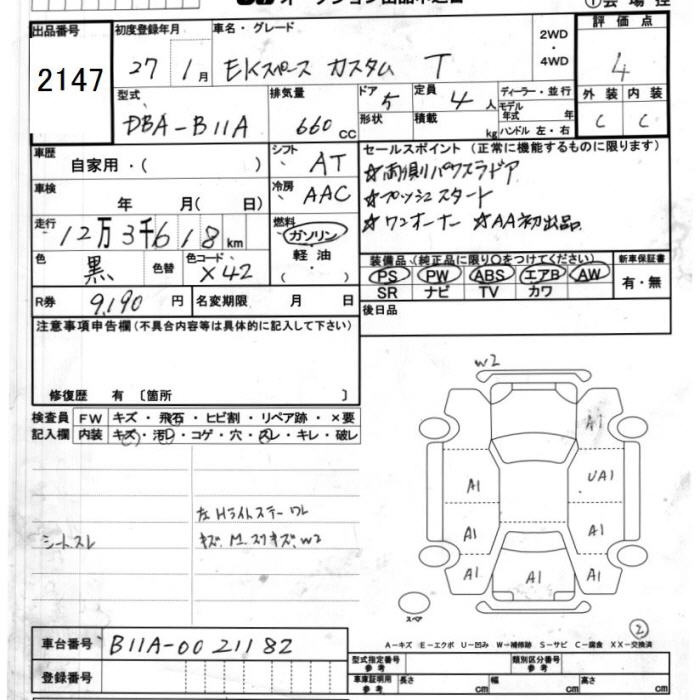 出品番号 初度登録年月 車名・グレード 2WD・4WD 評価点
2147 27 1月 EKスペース カスタム T 4
型式 排気量 ドア 5 定員 4人 ディーラー・並行 外装 内装
DBA-B11A 660cc 形状 積載 kg モデル年式 年 C C
ハンドル 左・右
車歴 自家用・( ) シフト AT セールスポイント (正常に機能するものに限ります)
☆両側パワスラドア
車検 年 月( 日) 冷房 AAC ☆プッシュスタート
走行 12万3千618km 燃料 ガソリン ☆ワンオーナー ☆AA初出品
軽油・( )
色 黒 色替 色コード X42 装備品 (純正品に限り○をつけてください) 新車保証書
PS PW ABS エアB AW 有・無
SR ナビ TV カワ
R券 9,190円 名変期限 月 日 後日品
注意事項申告欄(不具合内容等は具体的に記入して下さい)
W2
修復歴 有 〔箇所 〕
検査員 FW キズ・飛石・ヒビ割・リペア跡・×要
記入欄 内装 キズ・汚レ・コゲ・穴・スレ・キレ・破レ
A1
A1 UA1
左Hライトステーワレ
シートスレ キズ.M.スリキズ.W2
A1 A1
A1 A1 A1
スペア
②
A－キズ E－エクボ U－凹み W→補修跡 S－サビ C－腐食 XX－交換済
車台番号 B11A-0021182
型式指定番号 参考 類別区分番号 参考
登録番号 車庫証明用 参考 長さ cm 幅 cm 高さ cm